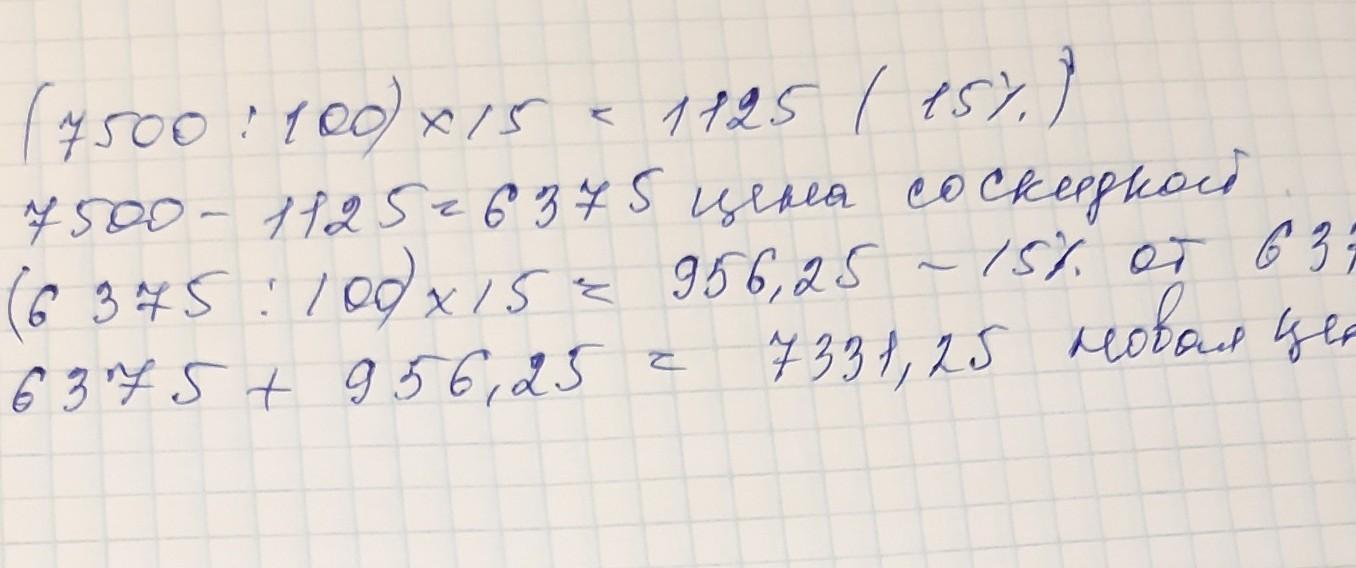 (7500 : 100) × 15 = 1125 ( 15%)
7500 - 1125 = 6375 цена со скидкой
(6375 : 100) × 15 = 956,25 - 15% от 637
6375 + 956,25 = 7331,25 новая це